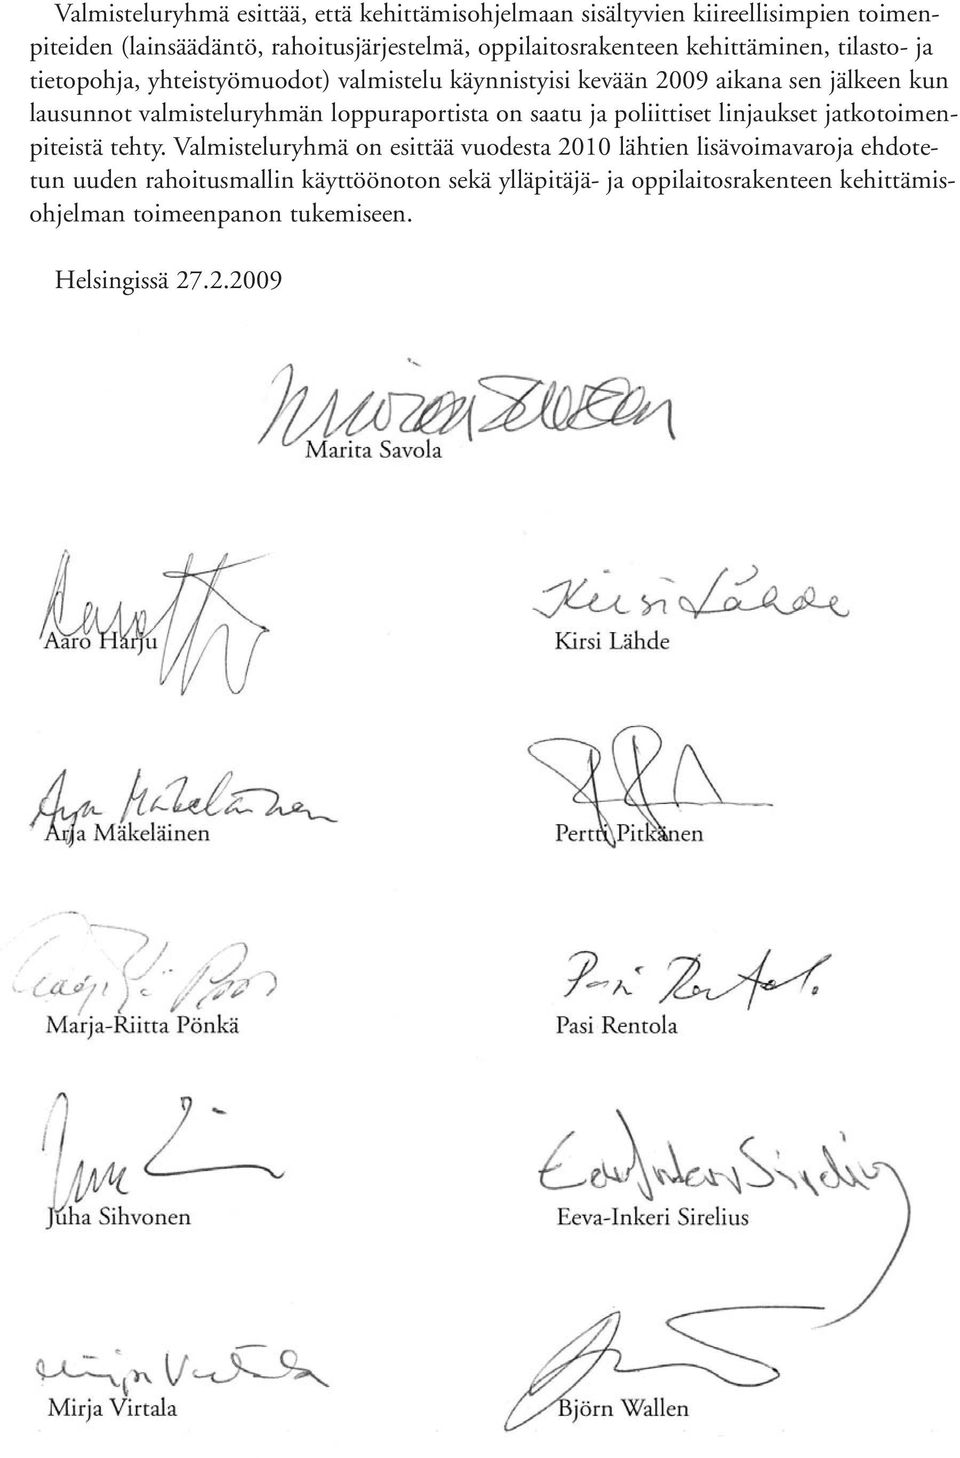 Valmisteluryhmä esittää, että kehittämisohjelmaan sisältyvien kiireellisimpien toimen-
piteiden (lainsäädäntö, rahoitusjärjestelmä, oppilaitosrakenteen kehittäminen, tilasto- ja
tietopohja, yhteistyömuodot) valmistelu käynnistyisi kevään 2009 aikana sen jälkeen kun
lausunnot valmisteluryhmän loppuraportista on saatu ja poliittiset linjaukset jatkotoimen-
piteistä tehty. Valmisteluryhmä on esittää vuodesta 2010 lähtien lisävoimavaroja ehdote-
tun uuden rahoitusmallin käyttöönoton sekä ylläpitäjä- ja oppilaitosrakenteen kehittämis-
ohjelman toimeenpanon tukemiseen.
Helsingissä 27.2.2009
Marita Savola
Kirsi Lähde
Aaro Harju
Kirsi Lähde
Arja Mäkeläinen
Arja Mäkeläinen
Pertti Pitkänen
Marja-Riitta Pönkä
Pasi Rentola
Pasi Rentola
Juha Sihvonen
Eeva-Inkeri Sirelius
Mirja Virtala
Mirja Virtala
Björn Wallen